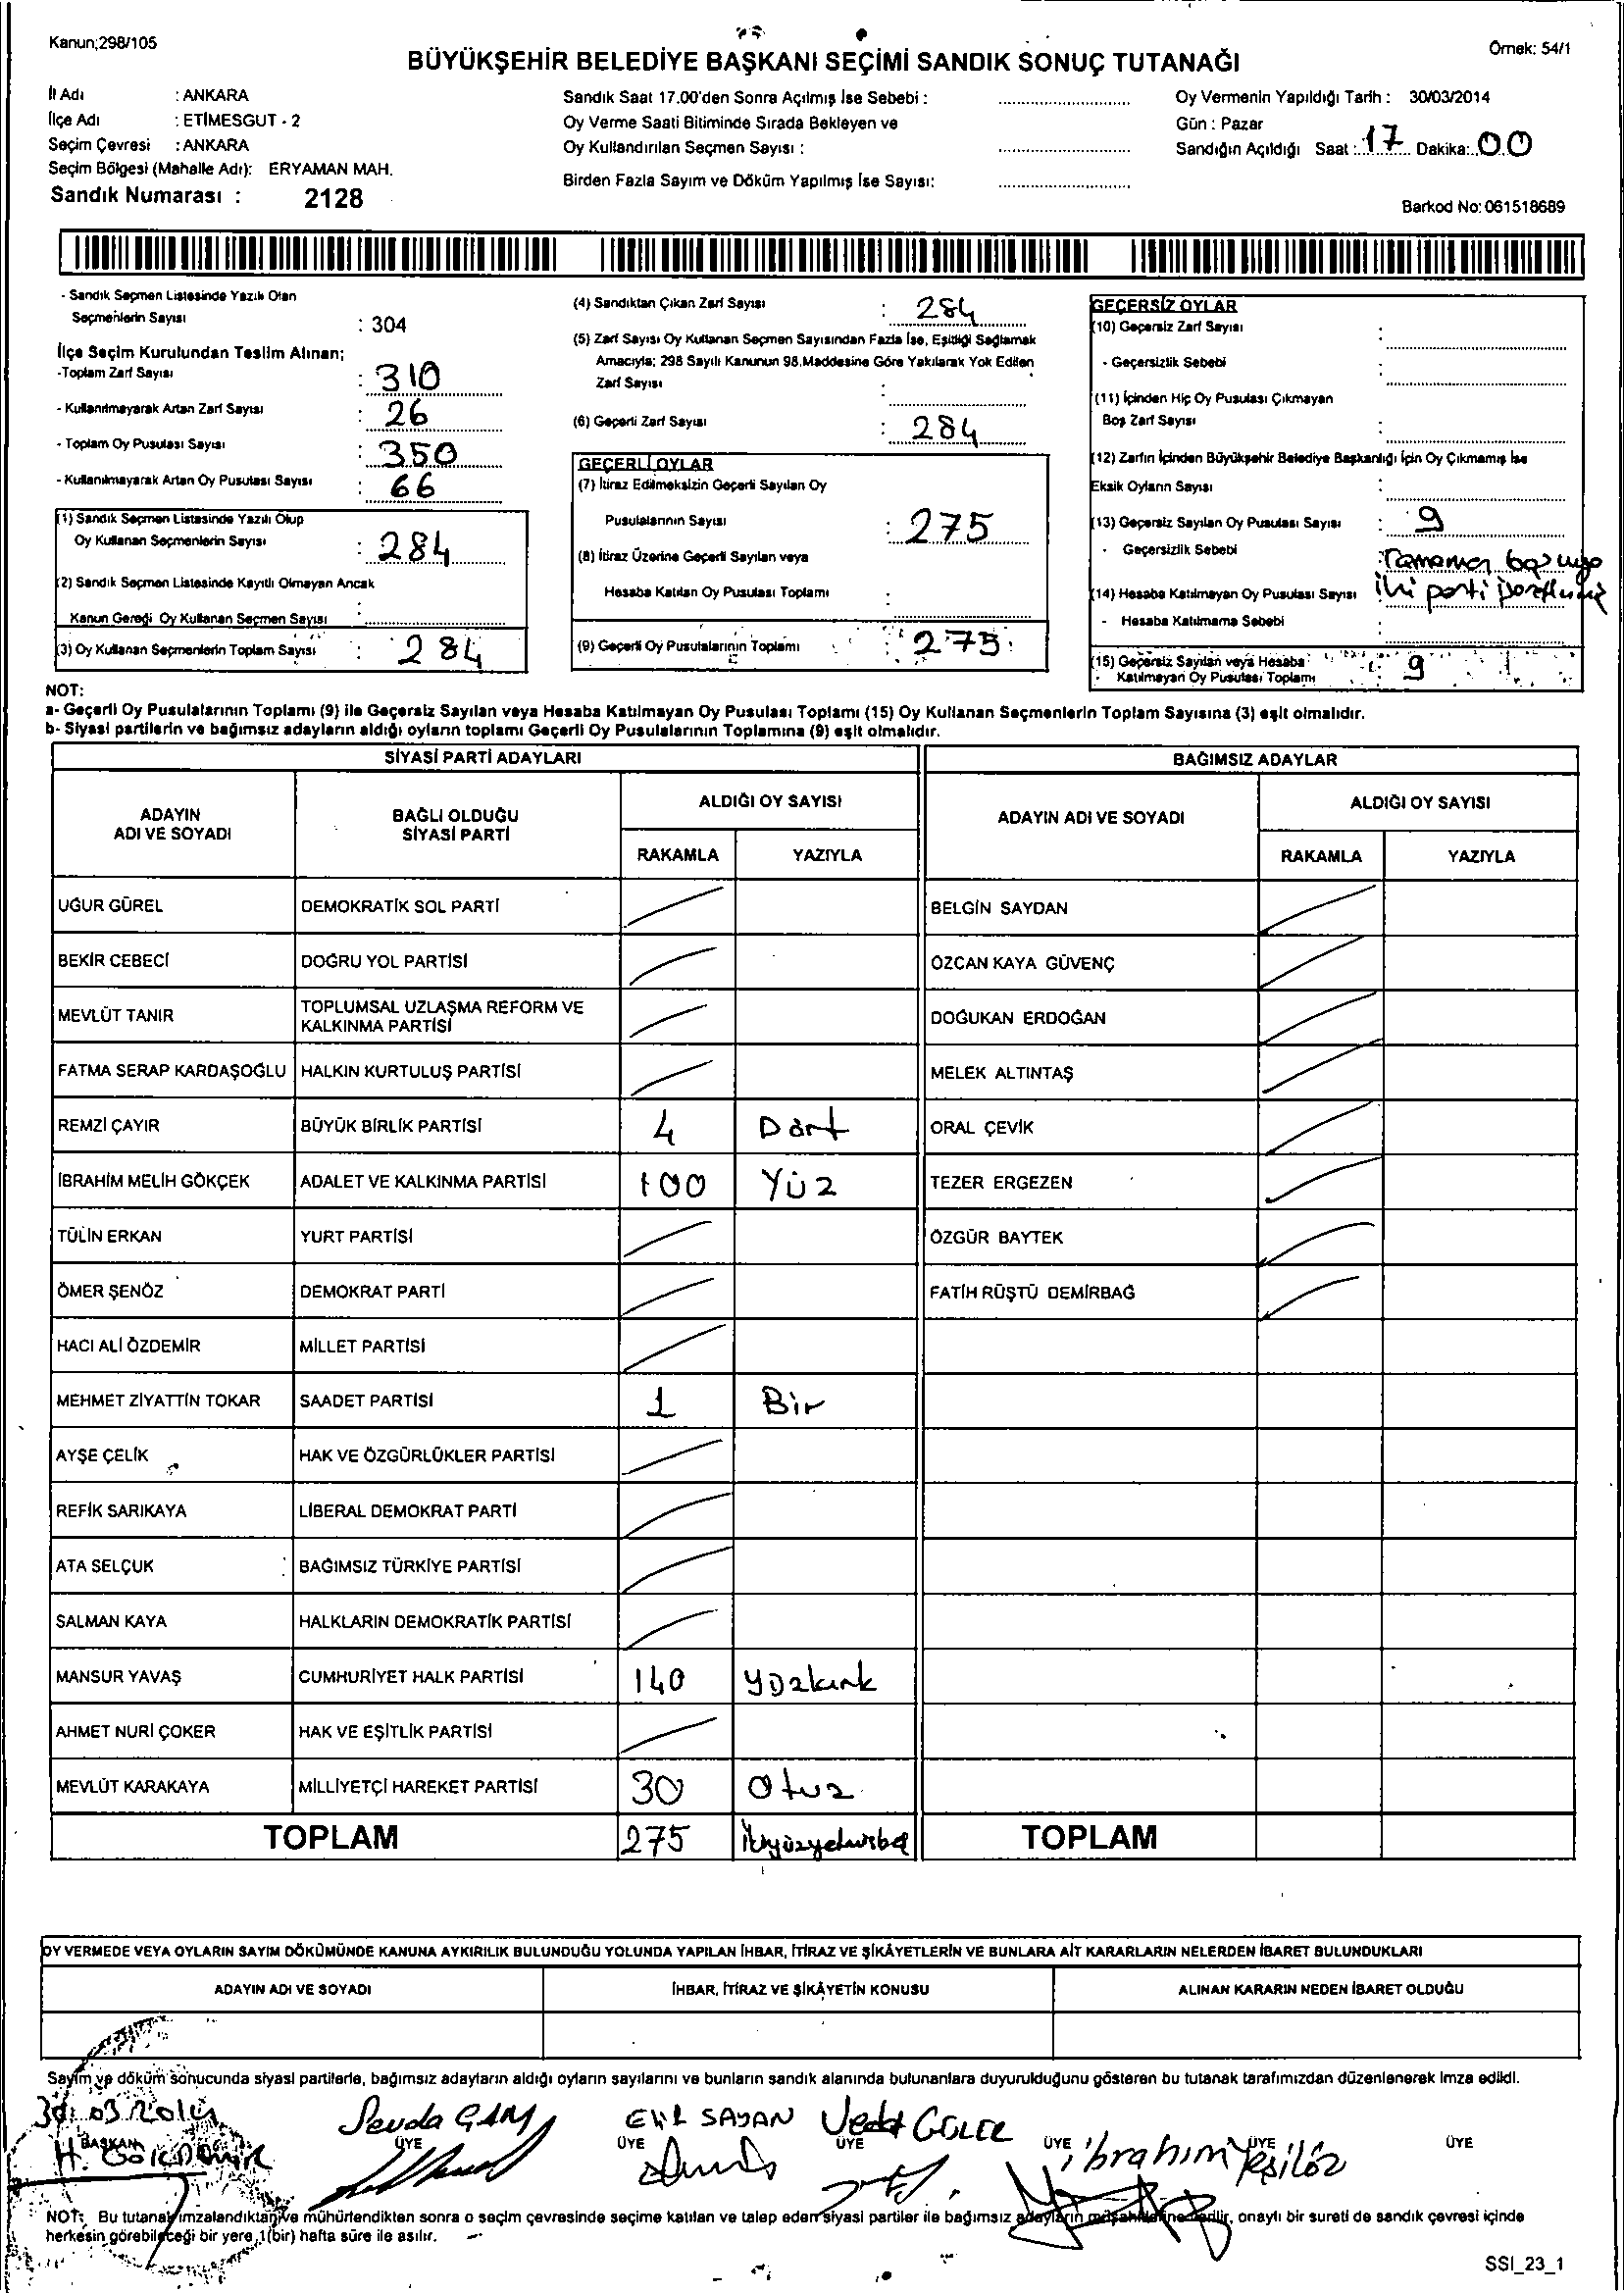 Kanun;298/105
Örnek: 54/1
BÜYÜKŞEHİR BELEDİYE BAŞKANI SEÇİMİ SANDIK SONUÇ TUTANAĞI
İl Adı : ANKARA
İlçe Adı : ETİMESGUT - 2
Seçim Çevresi : ANKARA
Seçim Bölgesi (Mahalle Adı): ERYAMAN MAH.
Sandık Numarası : 2128
Sandık Saat 17.00'den Sonra Açılmış İse Sebebi :
Oy Verme Saati Bitiminde Sırada Bekleyen ve
Oy Kullandırılan Seçmen Sayısı :
Birden Fazla Sayım ve Döküm Yapılmış İse Sayısı:
Oy Vermenin Yapıldığı Tarih : 30/03/2014
Gün : Pazar
Sandığın Açıldığı Saat : 17 Dakika: 00
Barkod No: 061518689
- Sandık Seçmen Listesinde Yazılı Olan
Seçmenlerin Sayısı : 304
İlçe Seçim Kurulundan Teslim Alınan;
-Toplam Zarf Sayısı : 310
- Kullanılmayarak Artan Zarf Sayısı : 26
- Toplam Oy Pusulası Sayısı : 350
- Kullanılmayarak Artan Oy Pusulası Sayısı : 66
(1) Sandık Seçmen Listesinde Yazılı Olup
Oy Kullanan Seçmenlerin Sayısı : 284
(2) Sandık Seçmen Listesinde Kayıtlı Olmayan Ancak
Kanun Gereği Oy Kullanan Seçmen Sayısı :
(3) Oy Kullanan Seçmenlerin Toplam Sayısı : 284
(4) Sandıktan Çıkan Zarf Sayısı : 284
(5) Zarf Sayısı Oy Kullanan Seçmen Sayısından Fazla İse, Eşitliği Sağlamak
Amacıyla; 298 Sayılı Kanunun 98.Maddesine Göre Yakılarak Yok Edilen
Zarf Sayısı :
(6) Geçerli Zarf Sayısı : 284
GEÇERLİ OYLAR
(7) İtiraz Edilmeksizin Geçerli Sayılan Oy
Pusulalarının Sayısı : 275
(8) İtiraz Üzerine Geçerli Sayılan veya
Hesaba Katılan Oy Pusulası Toplamı :
(9) Geçerli Oy Pusulalarının Toplamı : 275
GEÇERSİZ OYLAR
(10) Geçersiz Zarf Sayısı :
- Geçersizlik Sebebi :
(11) İçinden Hiç Oy Pusulası Çıkmayan
Boş Zarf Sayısı :
(12) Zarfın İçinden Büyükşehir Belediye Başkanlığı İçin Oy Çıkmamış İse
Eksik Oyların Sayısı :
(13) Geçersiz Sayılan Oy Pusulası Sayısı : 9
- Geçersizlik Sebebi :
(14) Hesaba Katılmayan Oy Pusulası Sayısı iki parti
- Hesaba Katılmama Sebebi :
(15) Geçersiz Sayılan veya Hesaba
Katılmayan Oy Pusulası Toplamı : 9
NOT:
a- Geçerli Oy Pusulalarının Toplamı (9) ile Geçersiz Sayılan veya Hesaba Katılmayan Oy Pusulası Toplamı (15) Oy Kullanan Seçmenlerin Toplam Sayısına (3) eşit olmalıdır.
b- Siyasi partilerin ve bağımsız adayların aldığı oyların toplamı Geçerli Oy Pusulalarının Toplamına (9) eşit olmalıdır.
SİYASİ PARTİ ADAYLARI
BAĞIMSIZ ADAYLAR
ADAYIN ADI VE SOYADI
BAĞLI OLDUĞU SİYASİ PARTİ
ALDIĞI OY SAYISI
RAKAMLA YAZIYLA
ADAYIN ADI VE SOYADI
ALDIĞI OY SAYISI
RAKAMLA YAZIYLA
UĞUR GÜREL DEMOKRATİK SOL PARTİ BELGİN SAYDAN
BEKİR CEBECİ DOĞRU YOL PARTİSİ ÖZCAN KAYA GÜVENÇ
MEVLÜT TANIR TOPLUMSAL UZLAŞMA REFORM VE KALKINMA PARTİSİ DOĞUKAN ERDOĞAN
FATMA SERAP KARDAŞOĞLU HALKIN KURTULUŞ PARTİSİ MELEK ALTINTAŞ
REMZİ ÇAYIR BÜYÜK BİRLİK PARTİSİ 4 Dört ORAL ÇEVİK
İBRAHİM MELİH GÖKÇEK ADALET VE KALKINMA PARTİSİ 100 Yüz TEZER ERGEZEN
TÜLİN ERKAN YURT PARTİSİ ÖZGÜR BAYTEK
ÖMER ŞENÖZ DEMOKRAT PARTİ FATİH RÜŞTÜ DEMİRBAĞ
HACI ALİ ÖZDEMİR MİLLET PARTİSİ
MEHMET ZİYATTİN TOKAR SAADET PARTİSİ 1 Bir
AYŞE ÇELİK HAK VE ÖZGÜRLÜKLER PARTİSİ
REFİK SARIKAYA LİBERAL DEMOKRAT PARTİ
ATA SELÇUK BAĞIMSIZ TÜRKİYE PARTİSİ
SALMAN KAYA HALKLARIN DEMOKRATİK PARTİSİ
MANSUR YAVAŞ CUMHURİYET HALK PARTİSİ 140 yüzkırk
AHMET NURİ ÇOKER HAK VE EŞİTLİK PARTİSİ
MEVLÜT KARAKAYA MİLLİYETÇİ HAREKET PARTİSİ 30 Otuz
TOPLAM 275 TOPLAM
OY VERMEDE VEYA OYLARIN SAYIM DÖKÜMÜNDE KANUNA AYKIRILIK BULUNDUĞU YOLUNDA YAPILAN İHBAR, İTİRAZ VE ŞİKÂYETLERİN VE BUNLARA AİT KARARLARIN NELERDEN İBARET BULUNDUKLARI
ADAYIN ADI VE SOYADI İHBAR, İTİRAZ VE ŞİKÂYETİN KONUSU ALINAN KARARIN NEDEN İBARET OLDUĞU
Sayım ve döküm sonucunda siyasi partilerle, bağımsız adayların aldığı oyların sayılarını ve bunların sandık alanında bulunanlara duyurulduğunu gösteren bu tutanak tarafımızdan düzenlenerek imza edildi.
30.03.2014 Sevda ÇAM Elif SAYAN Vedat
BAŞKAN ÜYE ÜYE ÜYE ÜYE ÜYE ÜYE
İbrahim Yeşilöz
NOT: Bu tutanak imzalandıktan ve mühürlendikten sonra o seçim çevresinde seçime katılan ve talep eden siyasi partiler ile bağımsız adayların müşahitlerine verilir, onaylı bir sureti de sandık çevresi içinde
herkesin görebileceği bir yere 1(bir) hafta süre ile asılır.
SSI_23_1